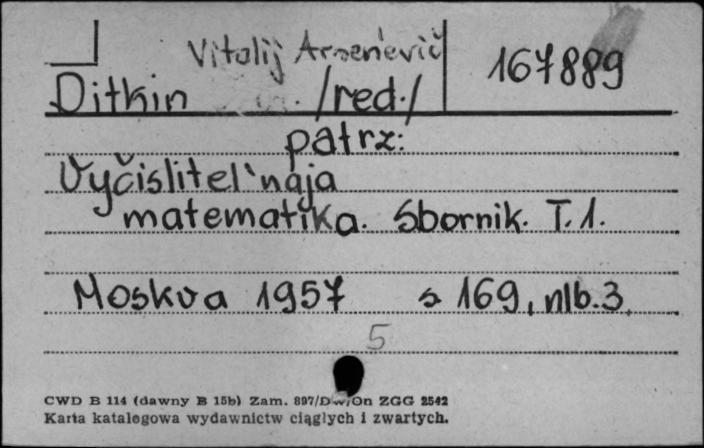 Vitalij Arsen'evič
167889
Ditkin /red./
patrz:
Vyčislitel'naja
matematika. Sbornik. T. 1.
Moskva 1957 s 169, nlb. 3.
5
CWD B 114 (dawny B 15b) Zam. 897/Dw/On ZGG 2542
Karta katalogowa wydawnictw ciągłych i zwartych.